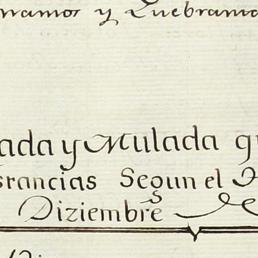 ramos y Quebrant
ada y Mulada q
srancias Segun el
Diziembrẽ de